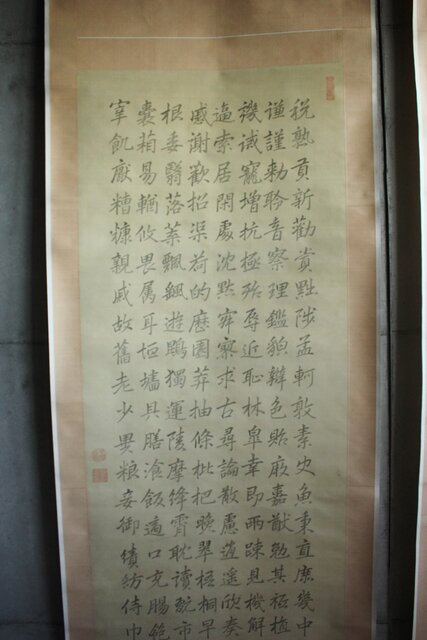 税熟貢新勸賞黜陟孟軻敦素史魚秉直庶幾中
謙謹勑聆音察理鑑貌辯色貽厥嘉猷勉其祗植
譏誡寵增抗極殆辱近恥林皋幸即兩疎見機解
逼索居閑處沈默寂寥求古尋論散慮逍遙欣奏
慼謝歡招渠荷的歷園莽抽條枇杷晚翠梧桐早
根委翳落葉飄颻遊鵾獨運凌摩絳霄耽讀翫市
囊箱易輶攸畏属耳垣墻具膳飡飯適口充腸飽
宰飢厭糟糠親戚故舊老少異粮妾御績紡侍巾